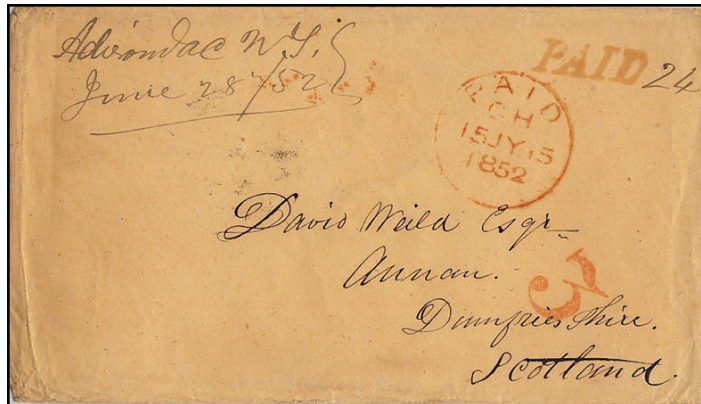 Adirondac N.Y.
June 28/52
PAID 24
PAID
CH
15JY15
1852
David Weild Esqr
Annan.
3
Dumfries Shire.
Scotland.